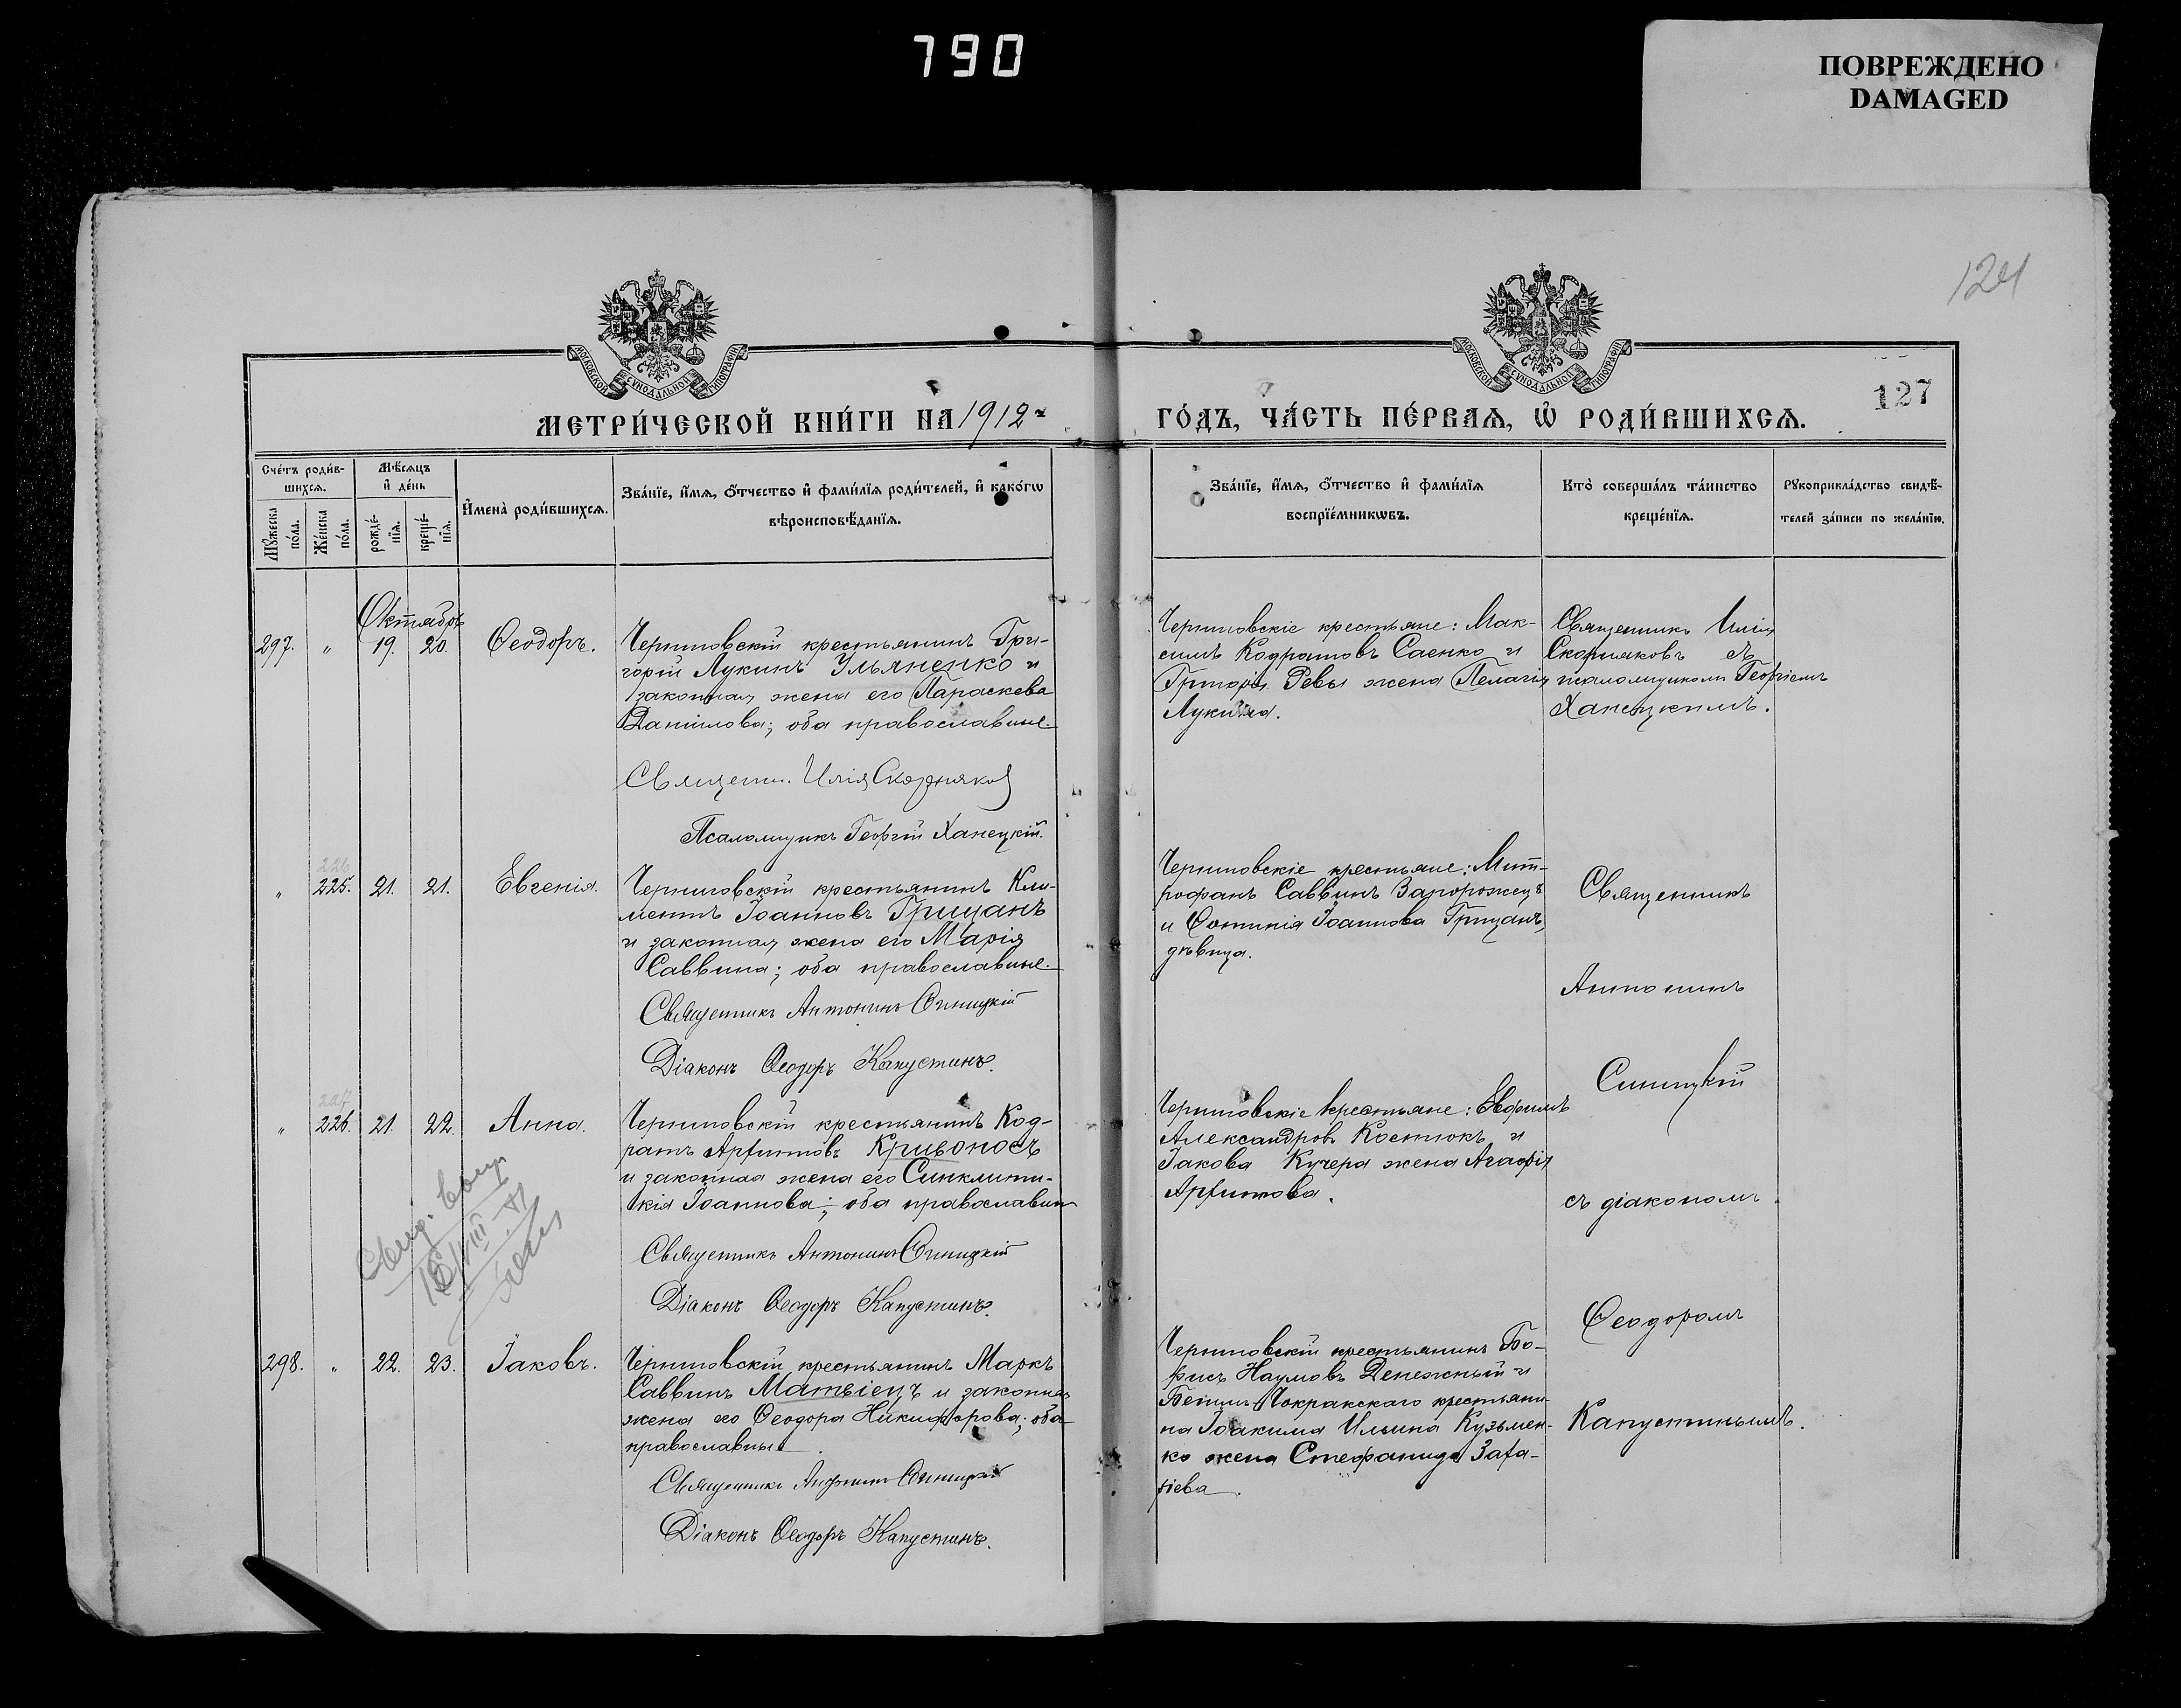 790
ПОВРЕЖДЕНО
DAMAGED
124
127
МОСКОВСКОЙ СУНОДАЛЬНОЙ ТИПОГРАФІИ
МОСКОВСКОЙ СУНОДАЛЬНОЙ ТИПОГРАФІИ
МЕТРИ́ЧЕСКОЙ КНИ́ГИ НА 1912 ГО́ДЪ, ЧА́СТЬ ПЕ́РВАѦ, Ѡ҆ РОДИ́ВШИХСѦ.
Сче́тъ роди́в-
шихсѧ.
Мꙋ́жеска по́ла.
Же́нска по́ла.
Мѣ́сѧцъ
и҆ де́нь
рожде́-нїѧ.
креще́-нїѧ.
И҆мена̀ роди́вшихсѧ.
Зва́нїе, и҆́мѧ, ѻ҆́тчество и҆ фами́лїѧ роди́телей, и҆ како́гѡ
вѣроисповѣ́данїѧ.
Зва́нїе, и҆́мѧ, ѻ҆́тчество и҆ фами́лїѧ
воспрїе́мникѡвъ.
Кто̀ соверша́лъ та́инство
креще́нїѧ.
Рꙋкоприкла́дство свидѣ́-
телей за́писи по жела́нїю.
Октябрь
297. " 19. 20. Ѳеодоръ.
Черниговскій крестьянинъ Гри-
горій Лукинъ Ульяненко и
законная жена его Параскева
Даніилова; оба православные.
Священн. Илія Скорняков
Псаломщикъ Георгій Ханецкій.
Черниговскіе крестьяне: Мак-
симъ Кодратовъ Саенко и
Григорія Ревы жена Пелагія
Лукина.
Священникъ Илія
Скорняковъ съ
псаломщикомъ Георгіемъ
Ханецкимъ.
226
" 225. 21. 21. Евгенія.
Черниговскій крестьянинъ Кли-
ментъ Іоанновъ Грицанъ
и законная жена его Марія
Саввина; оба православные.
Священникъ Антонинъ Синицкій
Діаконъ Ѳеодоръ Капустинъ.
Черниговскіе крестьяне: Мит-
рофанъ Саввинъ Запорожецъ
и Іоаннова Грицанъ,
дѣвица.
Священникъ
Антонинъ
Синицкій
съ діакономъ
Ѳеодоромъ
Капустинымъ.
227
" 226. 21. 22. Анна.
Черниговскій крестьянинъ Код-
ратъ Архиповъ Кривоносъ
и законная жена его Синклити-
кія Іоаннова; оба православны
Священникъ Антонинъ Синицкій
Діаконъ Ѳеодоръ Капустинъ.
Черниговскіе крестьяне: Евфимъ
Александровъ Костюкъ и
Іакова Кучера жена Агафія
Архипова.
298. " 22. 23. Іаковъ.
Черниговскій крестьянинъ Маркъ
Саввинъ Матвіецъ и законная
жена его Ѳеодора Никифорова; оба
православны.
Священникъ Антонинъ Синицкій
Діаконъ Ѳеодоръ Капустинъ.
Черниговскій крестьянинъ Бо-
рисъ Наумовъ Денежный и
Чокракскаго крестьяни-
на Іоакима Ильина Кузьмен-
ко жена Стефанида Заха-
ріева.